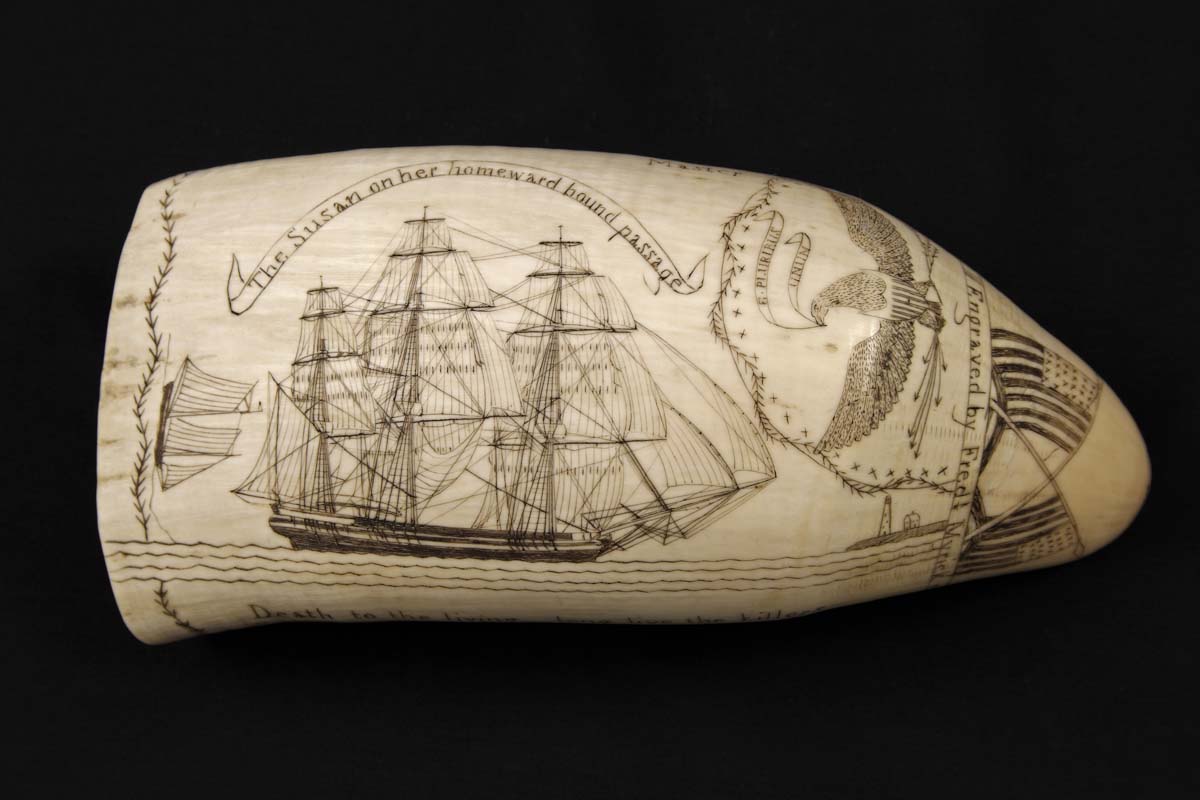 Master
The Susan on her homeward bound passage
E·PLURIBUS
UNUM
Engraved by Fred
Death to the living, long live the killers